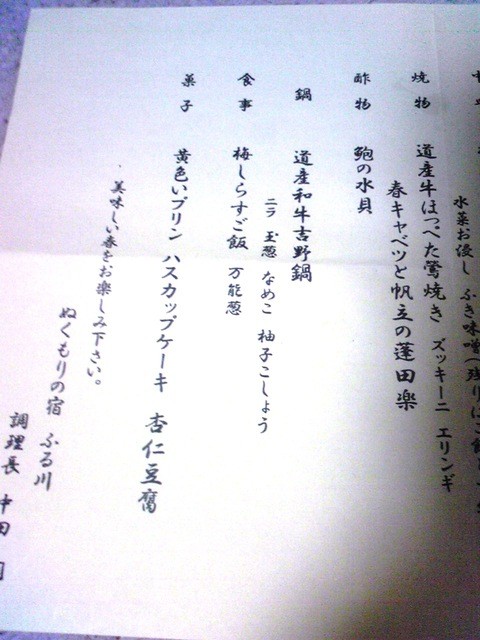 水菜お浸し ふき味噌
焼物 道産牛ほっぺた鶯焼き ズッキーニ エリンギ
春キャベツと帆立の蓬田楽
酢物 鮑の水貝
鍋 道産和牛吉野鍋
ニラ 玉葱 なめこ 柚子こしょう
食事 梅しらすご飯 万能葱
菓子 黄色いプリン ハスカップケーキ 杏仁豆腐
美味しい春をお楽しみ下さい。
ぬくもりの宿 ふる川
調理長 中田